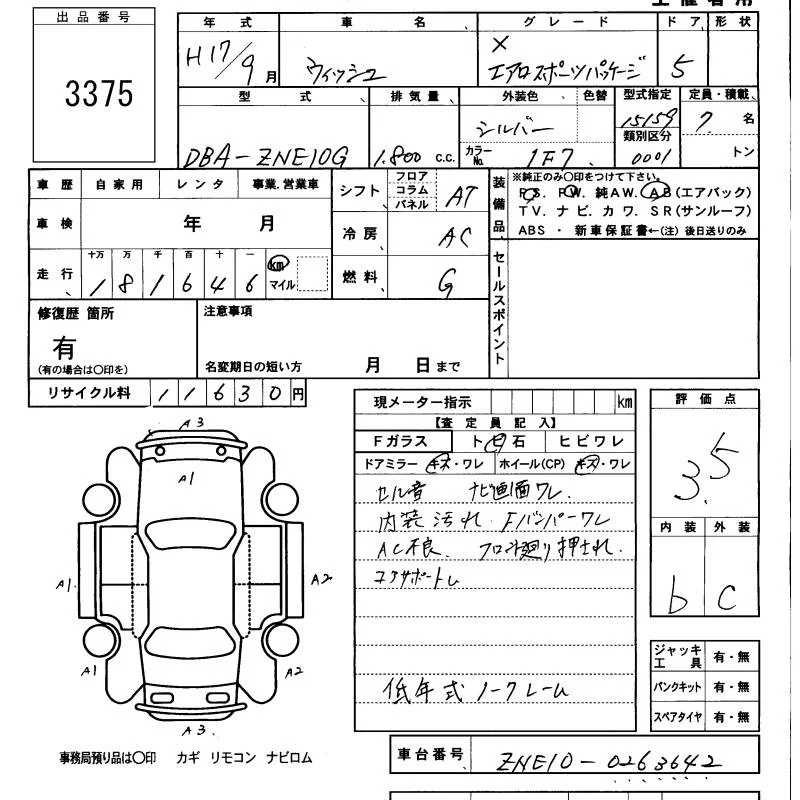 出品番号
3375
年式 車名 グレード ドア 形状
H17/9月 ウィッシュ X エアロスポーツパッケージ 5
型式 排気量 外装色 色替 型式指定 定員・積載
DBA-ZNE10G 1.800 c.c. シルバー 15159 7 名
カラーNo. 1F7 類別区分 0001 トン
車歴 自家用 レンタ 事業.営業車
車検 年 月
走行 十万 万 千 百 十 一
1 8 1 6 4 6 km マイル
シフト フロア コラム パネル AT
冷房 AC
燃料 G
装備品 ※純正のみ○印をつけて下さい。
PS. PW. 純AW. AB(エアバック)
TV. ナビ. カワ. SR(サンルーフ)
ABS ・ 新車保証書←(注) 後日送りのみ
セールスポイント
修復歴 箇所
有
(有の場合は○印を)
注意事項
名変期日の短い方 月 日まで
リサイクル料 11630円
現メーター指示 km
【査定員記入】
Fガラス トビ石 ヒビワレ
ドアミラー キズ・ワレ ホイール(CP) キズ・ワレ
セル音 ナビ画面ワレ.
内装汚れ Fバンパーワレ
AC不良. フロア廻り押され.
コアサポートレ
低年式ノークレーム
評価点
3.5
内装 外装
b C
ジャッキ工具 有・無
パンクキット 有・無
スペアタイヤ 有・無
A3
A1
A1
A2
A1
A2
A3.
事務局預り品は○印 カギ リモコン ナビロム
車台番号 ZNE10-0263642